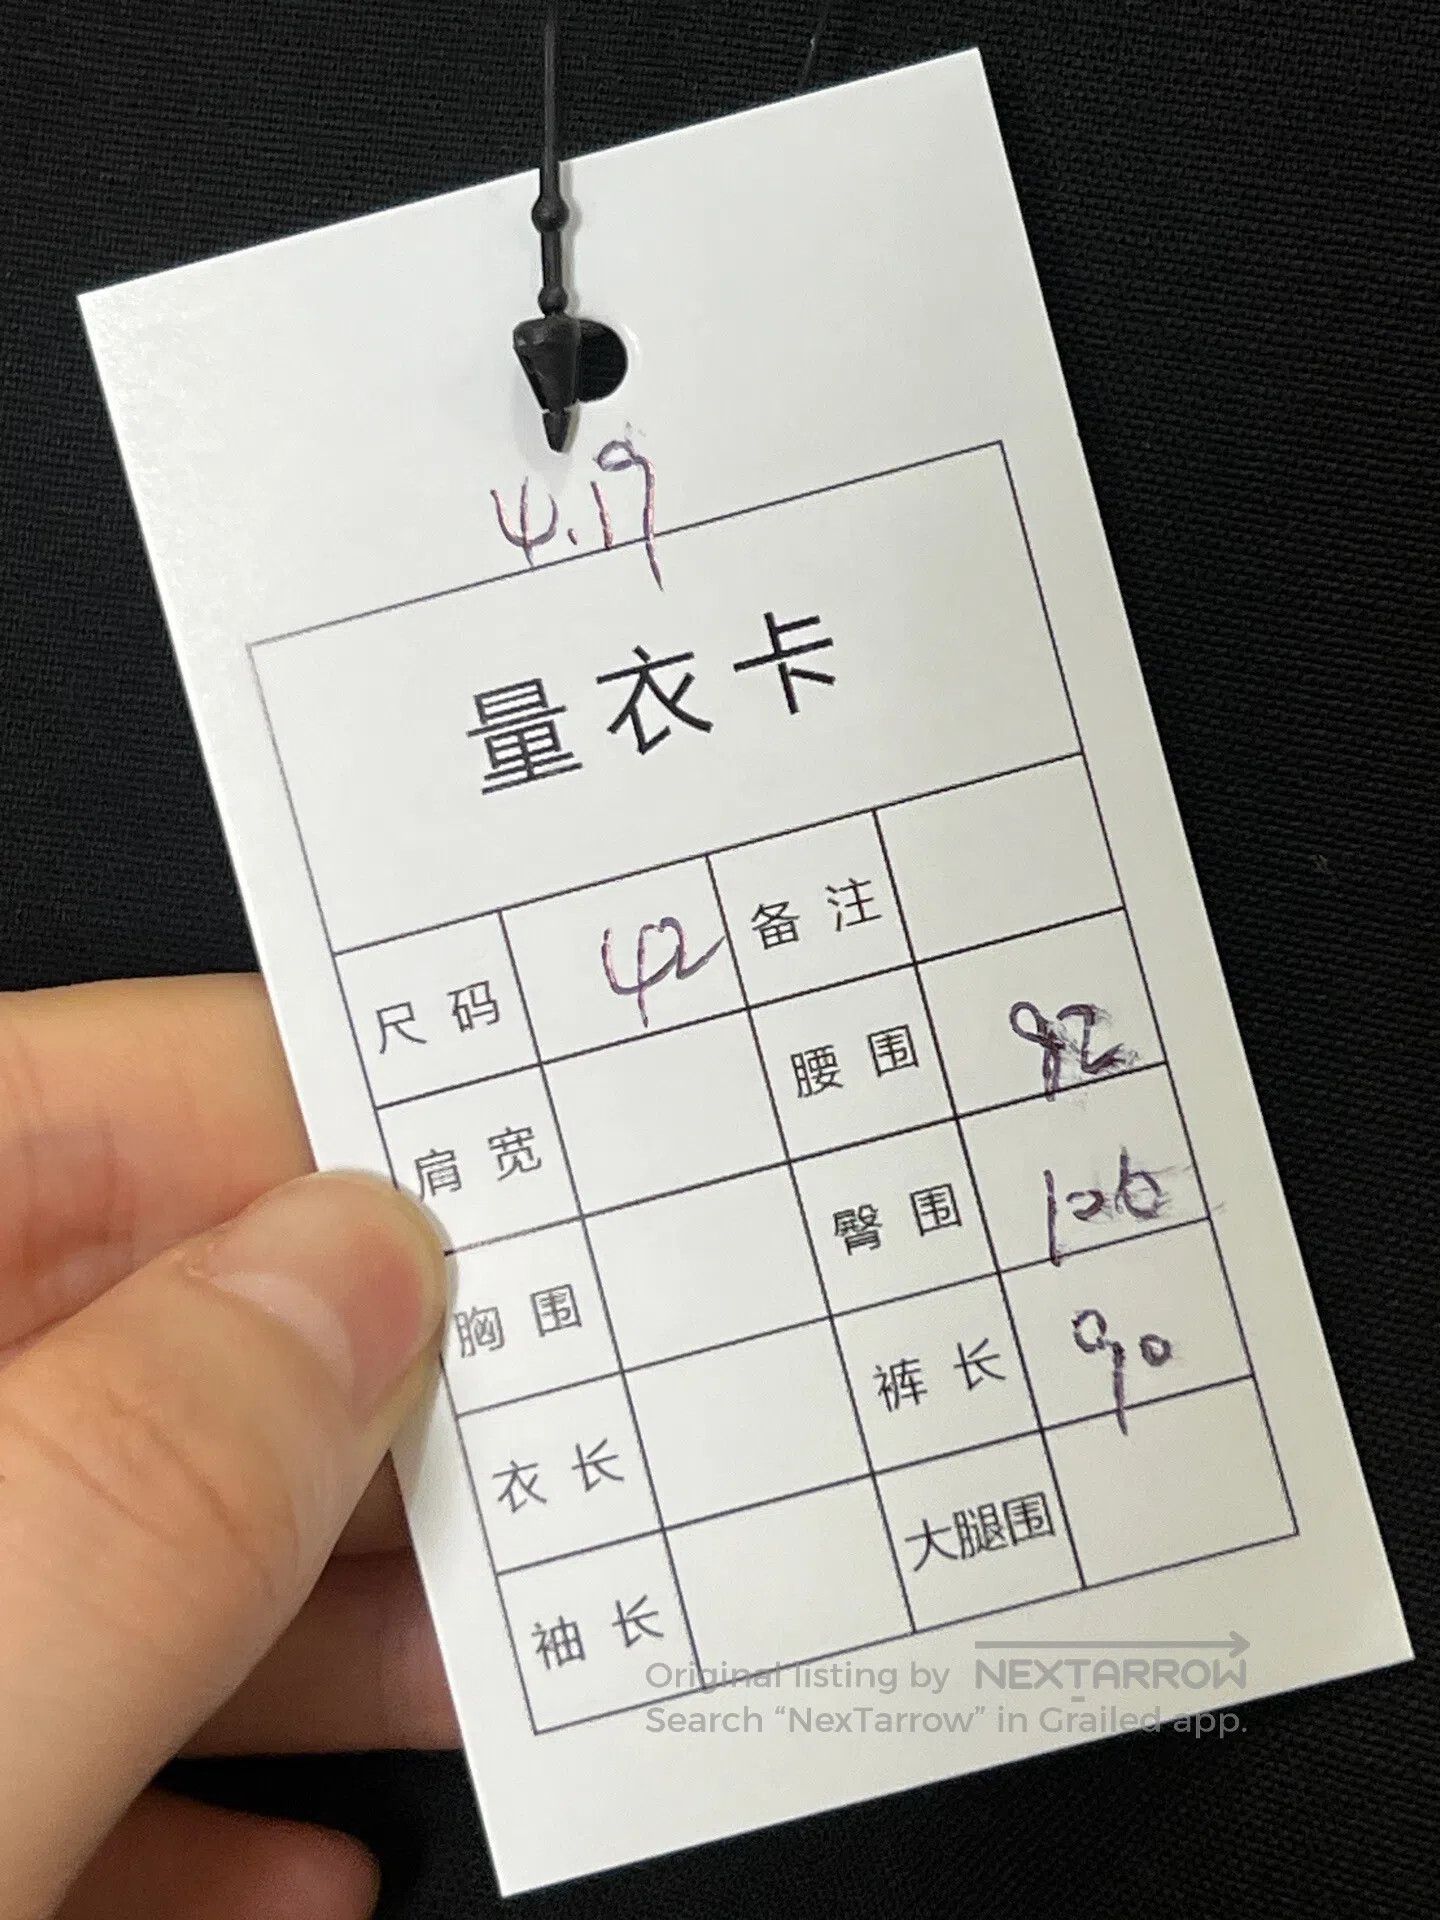 4.19
量衣卡
尺码 42 备注
肩宽 腰围 92
胸围 臀围 106
衣长 裤长 90
袖长 大腿围
Original listing by NEXTARROW
Search “NexTarrow” in Grailed app.